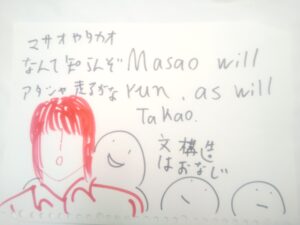 マサオやタカオ
なんて知らんぞ
アタシャ走るかな
Masao will
run, as will
Takao.
文構造
はおなじ